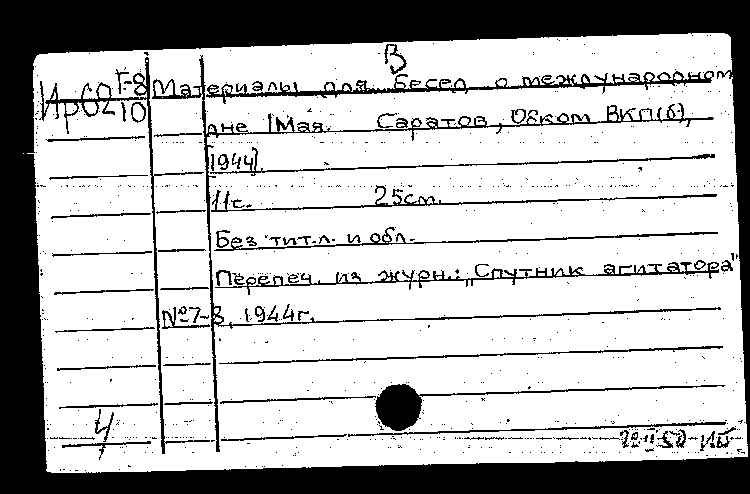 В
Ир62 Г-8/10 Материалы для бесед о международном
дне 1 Мая. Саратов, Обком ВКП(б),
[1944].
11с. 25см.
Без тит.л. и обл.
Перепеч. из журн.: „Спутник агитатора"
№7-8, 1944г.
4